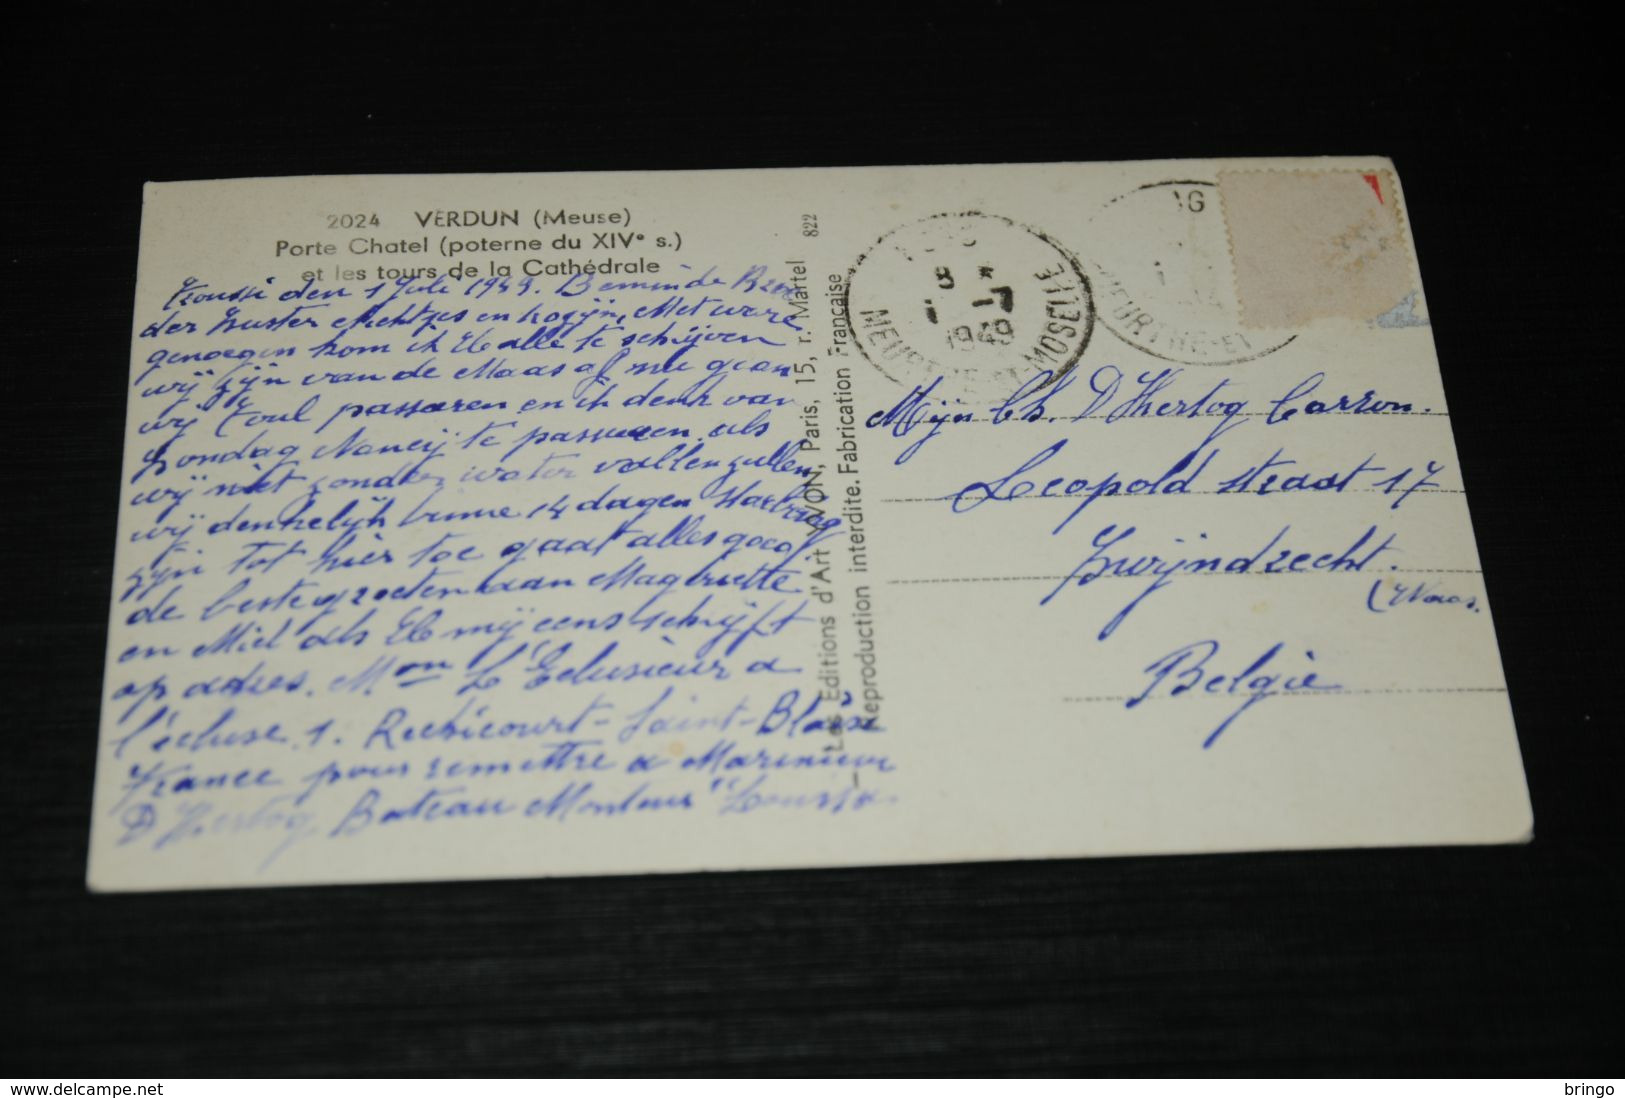 2024 VERDUN (Meuse)
Porte Chatel (poterne du XIVe s.)
et les tours de la Cathédrale
Troussi den 1 Juli 1949. Beminde Broe
der Zuster en kozijn, Met ware
genoegen kom ik U alle te schrijven
wij zijn van de Maas af nu gaan
wij Toul passeren en ik denk van
Zondag Nancij te passeren als
wij niet zonder water vallen zullen
wij denkelijk binne 14 dagen
zijn tot hier toe gaat alles goed.
de beste groeten aan Magriette
en Miel als U mij eens schrijft
op adres. Mon L'Eclusieur a
l'écluse 1. Rechicourt-Saint-Blaise
France pour remettre a Marinieur
D'Hertog Bateau Moteur "Loussa.
Les Editions d'Art YVON, Paris, 15, r. Martel 822
Reproduction interdite. Fabrication Française
8
1 -7
1949
MEURTHE-ET-MOSELLE
MEURTHE-ET
Mijn Ch. D'Hertog Carron.
Leopold straat 17
Zwijndrecht.
(Waas.
België
bringo